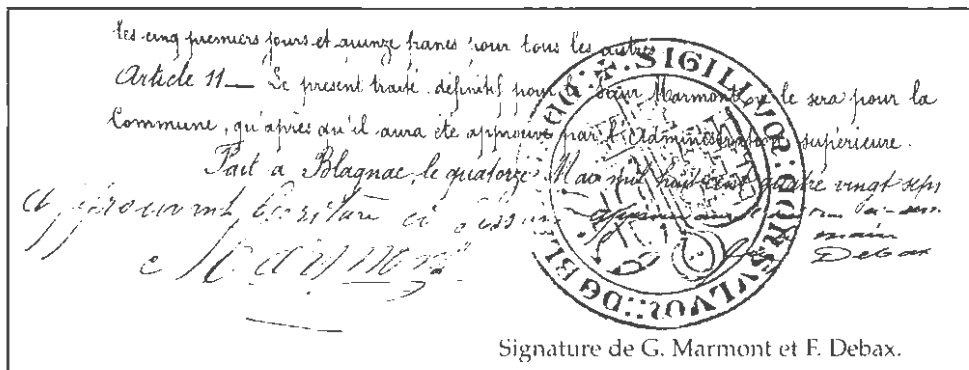 les cinq premiers jours et quinze francs pour tous les autres.
Article 11 — Le present traité définitif pour le Sieur Marmont, ne le sera pour la
Commune, qu'après qu'il aura été approuvé par l'Administration supérieure.
Fait à Blagnac, le quatorze Mai mil huit cent quatre vingt sept
approuvant l'écriture ci dessus
maire
Debax
SIGILLVM : CONSVLVM : DE BL
Signature de G. Marmont et F. Debax.